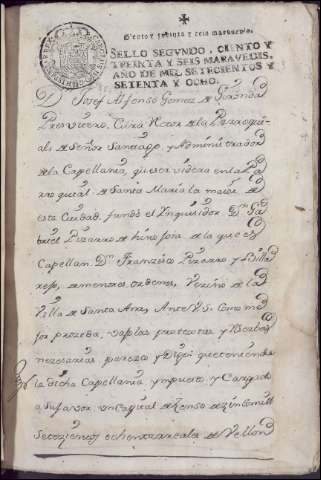 Ciento y treinta y seis maravedis.
SELLO SEGVNDO, CIENTO Y
TREINTA Y SEIS MARAVEDIS,
AÑO DE MIL SETECIENTOS Y
SETENTA Y OCHO.
D. Josef Alfonso Gomez de
Presvitero, Cura Rector de la Parroqui-
al de Señor Santiago, y Administrador
de la Capellania, que se sirve en la Pa-
rroquial de Santa Maria la maior de
esta Ciudad, fundó el Ynquisidor Dn. Ga-
briel Pizarro de hinojosa de la que es
Capellan Dn. Francisco Pizarro y
de menores ordenes, Vezino de la
Villa de Santa Ana, Ante V.S. Como me-
jor proceda, vajo las protestas y
necesarias parezco y Digo: que teniendo
la dicha Capellania ympuesto y Cargado
a su favor un Capital de Zenso de
Setezientos ochenta reales de Vellon